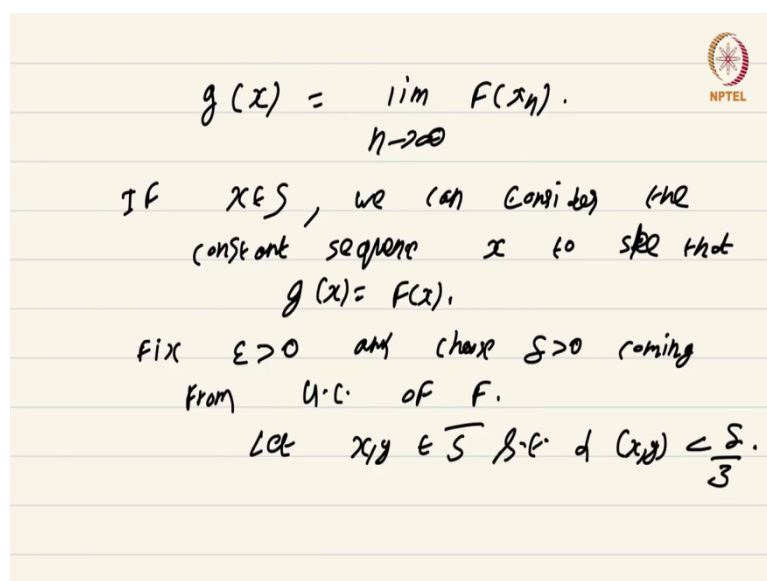 g(x) = lim F(xn).
n->∞
NPTEL
If x ∈ S, we can consider the
constant sequence x to see that
g(x) = F(x).
Fix ε > 0 and choose δ > 0 coming
from U.C. of F.
Let x,y ∈ S̅ s.t. d(x,y) < δ/3.